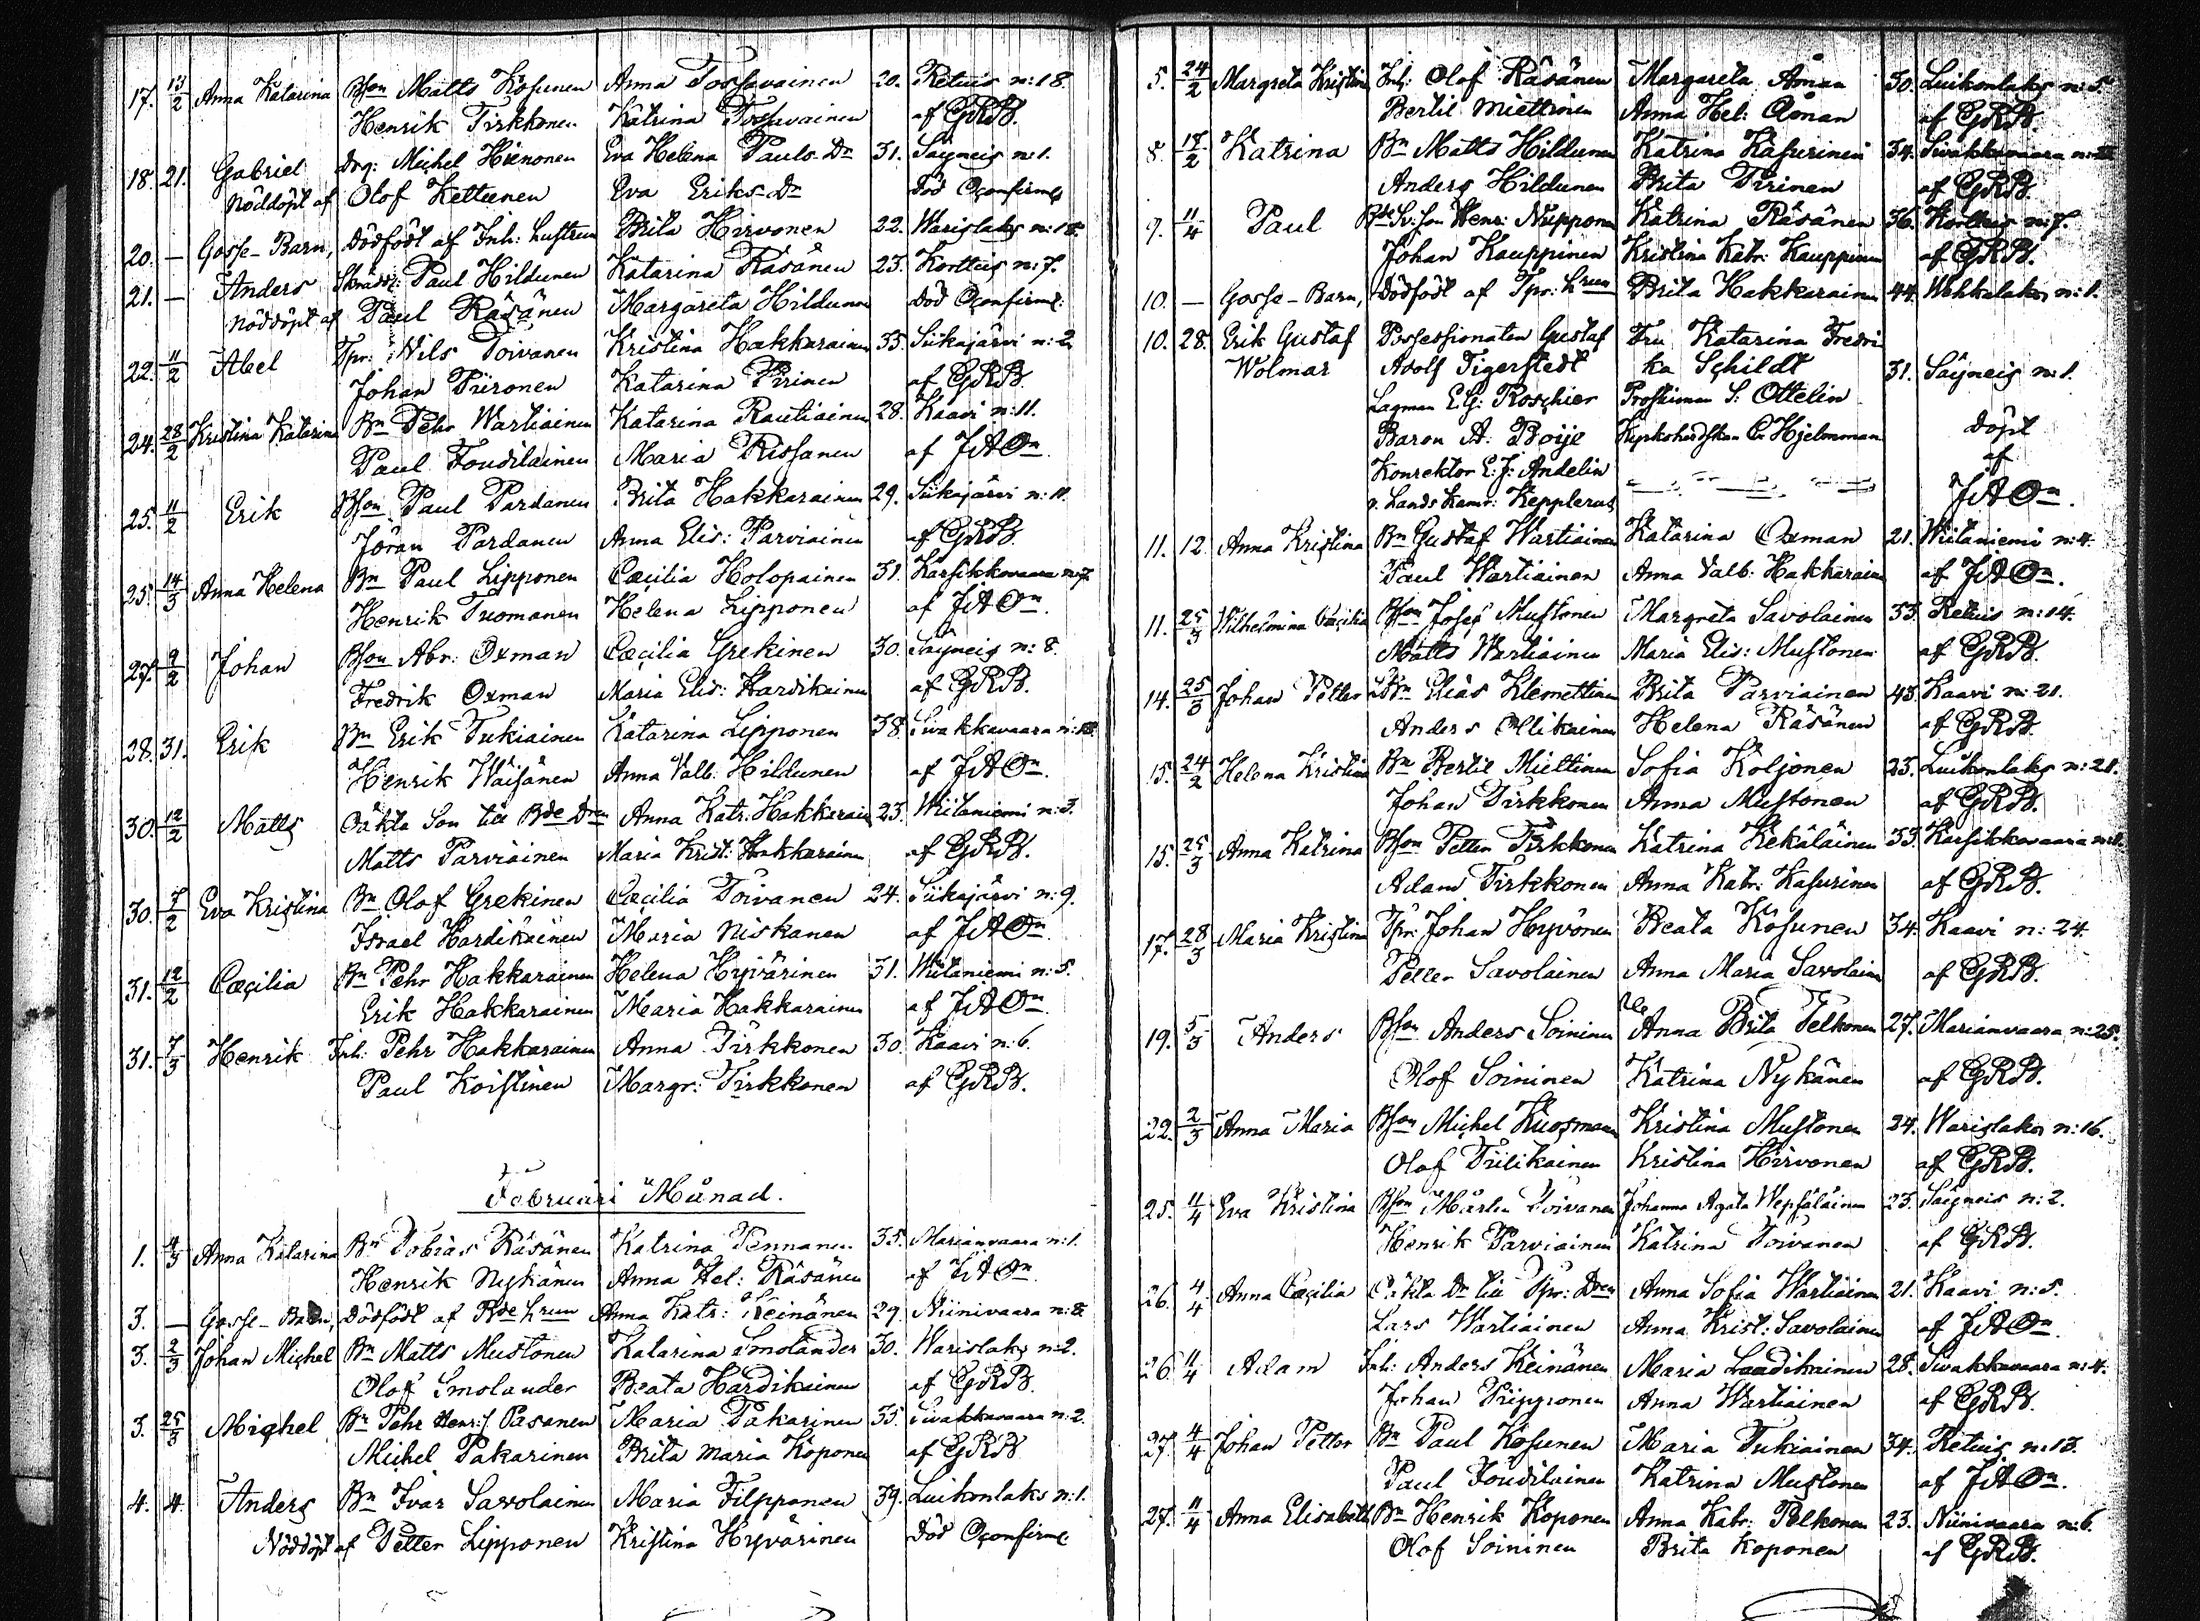 17. 13/2 Anna Katarina Bson Matts Kosunen Anna Tossavainen 20. Retuis n:18.
Henrik Tirkkonen Katrina Tossavainen af GRB.
18. 21. Gabriel Drg: Michel Hienonen Eva Helena Pauls Dr 31. Säyneis n:1.
Nöddöpt af Olof Kettunen Eva Eriks-Dr Död Oconfirm:
20. — Gosse-Barn, Dödfödt af Inh: hustrun Brita Hirvonen 22. Warislaks n:18.
21. — Anders Skrädd: Paul Hildunen Katarina Räsänen 23. Kortteis n:7.
Nöddöpt af Paul Räsänen Margareta Hildunen Död Oconfirm:
22. 11/2 Abel Tpr: Nils Toivanen Kristina Hakkarainen 33. Siikajärvi n:2.
Johan Piironen Katarina Pirinen af GRB.
24. 28/2 Kristina Katarina Bn Pehr Wartiainen Katarina Rautiainen 28. Kaavi n:11.
Paul Toudilainen Maria Rissanen af JAOn.
25. 11/2 Erik Bson Paul Pardanen Brita Hakkarainen 29. Siikajärvi n:11.
Jöran Pardanen Anna Elis: Parviainen af GRB.
25. 14/3 Anna Helena Bn Paul Lipponen Cæcilia Holopainen 31. Karsikkovaara n:7.
Henrik Tuomanen Helena Lipponen af JAOn.
27. 9/2 Johan Bson Abr: Oxman Cæcilia Grekinen 30. Säyneis n:8.
Fredrik Oxman Maria Elis: Hardikainen af GRB.
28. 31. Erik Bn Erik Tukiainen Katarina Lipponen 38. Sivakkavaara
Henrik Wäisänen Anna Valb: Hildunen af JAOn.
30. 12/2 Matts Oäkta Son till Bde Dren Anna Katr: Hakkarain 23. Wiitaniemi n:3.
Matts Parviainen Maria Krist: Hakkarainen af GRB.
30. 7/2 Eva Kristina Bn Olof Grekinen Cæcilia Toivanen 24. Siikajärvi n:9.
Israel Hardikainen Maria Niskanen af JAOn.
31. 12/2 Cæcilia Bn Pehr Hakkarainen Helena Hyvärinen 31. Wiitaniemi n:5.
Erik Hakkarainen Maria Hakkarainen af JAOn.
31. 7/3 Henrik Inh: Pehr Hakkarainen Anna Tirkkonen 30. Kaavi n:6.
Paul Koistinen Margr: Tirkkonen af GRB.
Februari Månad.
1. 4/3 Anna Katarina Bn Tobias Räsänen Katrina Pennanen 35. Marianvaara n:1.
Henrik Nykänen Anna Hel: Räsänen af JAOn.
3. — Gosse-Barn, Dödfödt af Bde hrun Anna Katr: Keinänen 29. Niinivaara n:8.
3. 2/3 Johan Michel Bn Matts Mustonen Katarina Smolander 30. Warislaks n:2.
Olof Smolander Beata Hardikainen af GRB.
3. 25/3 Michel Bn Pehr Henr: Pasanen Maria Pakarinen 33. Sivakkavaara n:2.
Michel Pakarinen Brita Maria Koponen af GRB
4. 4. Anders Bn Ivar Savolainen Maria Filpponen 39. Luikonlaks n:1.
Nöddöpt af Petter Lipponen Kristina Hyvärinen Död Oconfirm:
5. 24/2 Margreta Kristina Inh: Olof Räsänen Margareta Åman 30. Luikonlaks n:5.
Bertil Miettinen Anna Hel: Åman af GRB.
8. 17/2 Katrina Bn Matts Hildunen Katrina Kasurinen 34. Sivakkavaara
Anders Hildunen Brita Pirinen af GRB.
9. 11/4 Paul Henr: Nupponen Katrina Räsänen 36. Kortteis n:7.
Johan Kauppinen Kristina Katr: Kauppinen af GRB.
10. — Gosse-Barn, Dödfödt af Tpr: hrun Brita Hakkarainen 44. Wehkalaks n:1.
10. 28. Erik Gustaf Possessionaten Gustaf Fru Katarina Fredri
Wolmar Adolf Tigerstedt ka Schildt 31. Säyneis n:1.
Lagman E.G: Roschier Prostinnan S: Ottelin
Baron A: Boije Kyrkoherdskan C: Hjelmman Döpt
Konrektor E:J: Andelin af
v. Lands Kamr: Kepplerus JAOn.
11. 12. Anna Kristina Bn Gustaf Wartiainen Katarina Oxman 21. Wiitaniemi n:4.
Paul Wartiainen Anna Valb: Hakkarain af JAOn.
11. 25/3 Wilhelmina Cæcilia Bson Josef Mustonen Margreta Savolainen 33. Retuis n:14.
Matts Wartiainen Maria Elis: Mustonen af GRB.
14. 25/3 Johan Petter Bn Elias Klemettinen Brita Parviainen 43. Kaavi n:21.
Anders Ollikainen Helena Räsänen af GRB.
15. 24/2 Helena Kristina Bn Bertil Miettinen Sofia Koljonen 23. Luikonlaks n:21.
Johan Tirkkonen Anna Mustonen af GRB.
15. 25/3 Anna Katrina Bson Petter Tirkkonen Katrina Kekäläinen 33. Karsikkovaara
Adam Tirkkonen Anna Katr: Kasurinen af GRB.
17. 28/3 Maria Kristina Tpr: Johan Hyvönen Beata Kosunen 34. Kaavi n:24.
Petter Savolainen Anna Maria Savolain af GRB.
19. 5/3 Anders Bson Anders Soininen Anna Brita Pelkonen 27. Marianvaara n:25.
Olof Soininen Katrina Nykänen af GRB.
22. 2/3 Anna Maria Bson Michel Kuosmanen Kristina Mustonen 24. Warislaks n:16.
Olof Tiilikainen Kristina Hirvonen af GRB.
25. 11/4 Eva Kristina Bson Mårten Toivanen Johanna Agata Wepsäläinen 23. Säyneis n:2.
Henrik Parviainen Katrina Toivanen af GRB.
26. 4/4 Anna Cæcilia Oäkta Dr till Tpr: Dren Anna Sofia Wartiainen 21. Kaavi n:5.
Lars Wartiainen Anna Krist: Savolainen af JAOn.
26. 11/4 Adam Inh: Anders Keinänen Maria Laadikainen 28. Sivakkavaara n:4.
Johan Pipponen Anna Wartiainen af GRB.
27. 4/4 Johan Petter Bn Paul Kosunen Maria Tukiainen 34. Retuis n:13.
Paul Toudilainen Katrina Mustonen af JAOn.
27. 11/4 Anna Elisabeth Bn Henrik Koponen Anna Katr: Pelkonen 23. Niinivaara n:6.
Olof Soininen Brita Koponen af GRB.